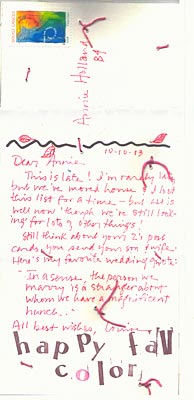 Annie Holland
10-10-13
Dear Annie,
This is late! I'm rarely late
but we've moved house & lost
this list for a time – but all is
well now though we're still look-
ing for lots of other things!
Still think about your
cards you send your son & wife.
Here's my favorite wedding quote:
"In a sense, the person we
marry is a stranger about
whom we have a magnificent
hunch.."
All best wishes,
happy fall
color